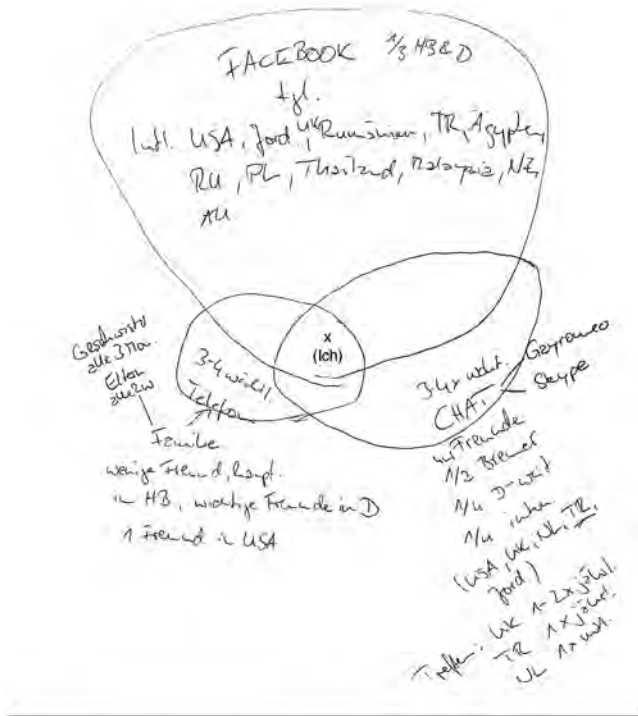 FACEBOOK 1/3 HB & D
tgl.
Intl. USA, Jord, UK, Rumänien, TR, Ägypten,
RU, PL, Thailand, Malaysia, NZ,
AU
x
(Ich)
Geschwister
alle 3 Mon.
Eltern
alle 2W
3-4 wöchtl.
Telefon
Familie
wenige Freund, haupt.
in HB, wichtige Freunde in D
1 Freund in USA
3-4 x wöcht.
CHAT
Gayromeo
Skype
Freunde
1/2 Bremer
1/4 D-weit
1/4 intern.
(USA, UK, NL, TR,
Jord)
Treffen: UK 1-2x jährl.
TR 1x jährl.
NL 1x